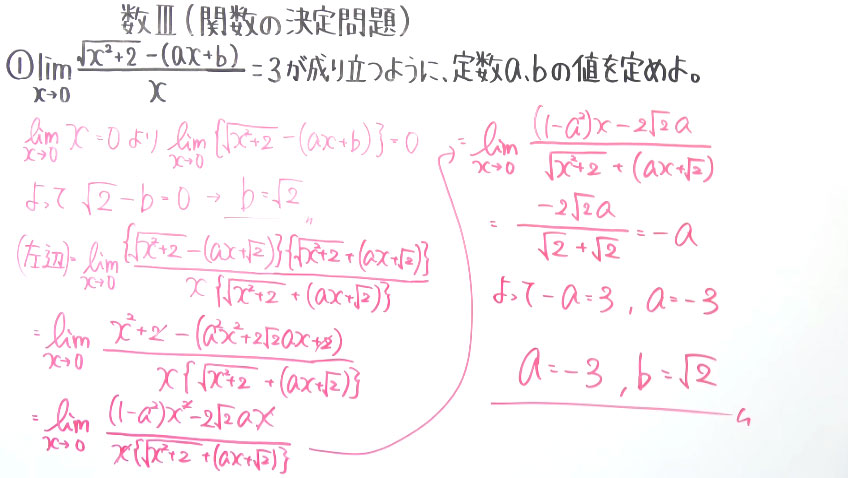 数Ⅲ(関数の決定問題)
① lim_{x→0} (√(x²+2) - (ax+b))/x = 3 が成り立つように、定数a、bの値を定めよ。
lim_{x→0} x = 0 より lim_{x→0} {√(x²+2) - (ax+b)} = 0
よって √2 - b = 0 → b = √2 〃
(左辺) = lim_{x→0} {√(x²+2) - (ax+√2)}{√(x²+2) + (ax+√2)} / x{√(x²+2) + (ax+√2)}
= lim_{x→0} (x²+2 - (a²x²+2√2ax+2)) / x{√(x²+2) + (ax+√2)}
= lim_{x→0} ((1-a²)x² - 2√2ax) / x{√(x²+2) + (ax+√2)}
= lim_{x→0} ((1-a²)x - 2√2a) / (√(x²+2) + (ax+√2))
= -2√2a / (√2+√2) = -a
よって -a = 3 , a = -3
a = -3 , b = √2